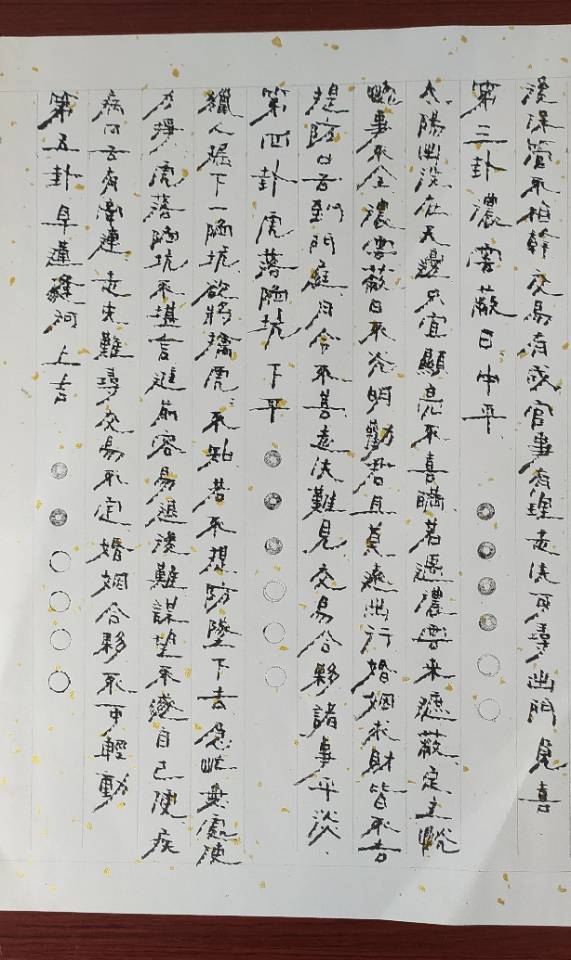 後保管不相幹交易有成官事有理走失可尋出門見喜
第三卦濃雲蔽日中平
太陽出沒在天邊只宜顯亮不喜瞞若遇濃雲來遮蔽定主
事不全濃雲蔽日不光明勸君且莫遠出行婚姻求財皆不吉
提防口舌到門庭月令不善走失難見交易合夥諸事平淡
第四卦虎落陷坑下平
獵人掘下一陷坑欲將擒虎不知若不想防墜下去急忙無處使
力掙虎落陷坑不堪言進前容易退後難謀望不遂自己便疾
病口舌有牽連走失難尋交易不定婚姻合夥不可輕動
第五卦旱蓮逢河上吉